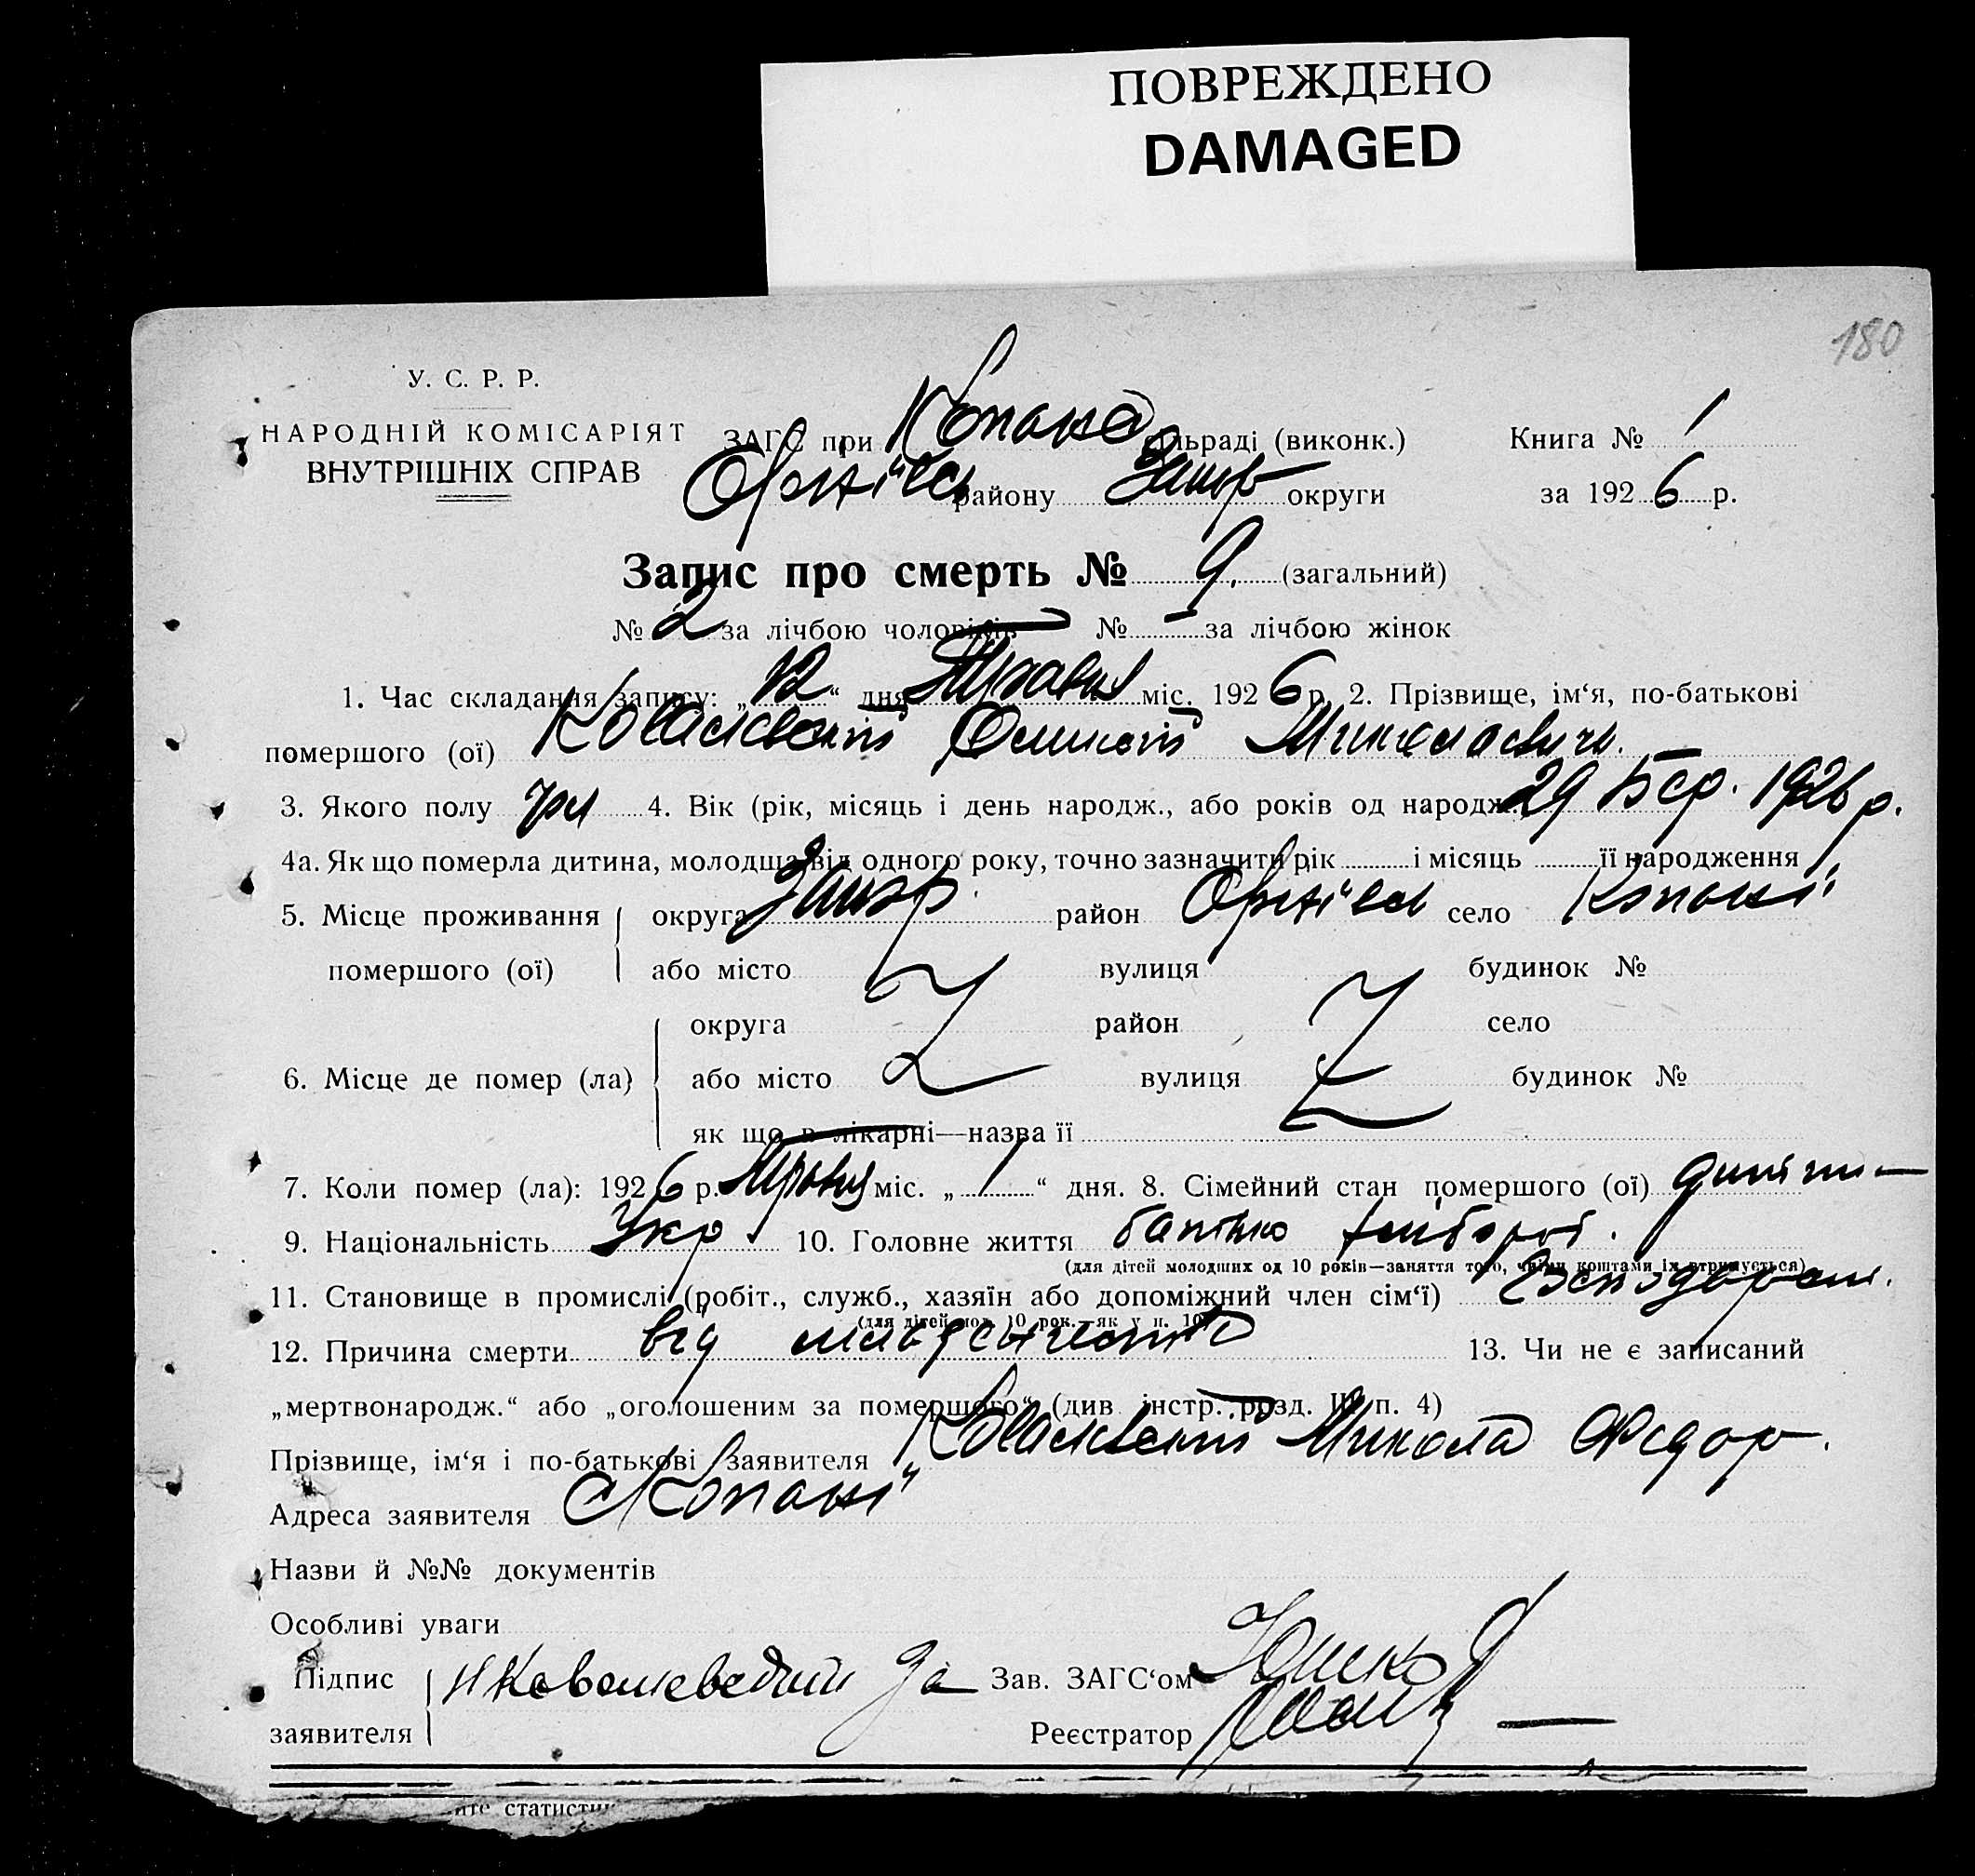 ПОВРЕЖДЕНО
DAMAGED
180
У. С. Р. Р.
НАРОДНІЙ КОМІСАРІЯТ
ВНУТРІШНІХ СПРАВ
ЗАГС при Копань сільраді (виконк.) Книга № 1
району округи за 1926 р.
Запис про смерть № 9. (загальний)
№ 2 за лічбою чоловіків № — за лічбою жінок
1. Час складання запису: „12“ дня Травня міс. 1926 р. 2. Прізвище, ім‘я, по-батькові
помершого (ої) Ковалевский Миколаевичь.
3. Якого полу чол 4. Вік (рік, місяць і день народж., або років од народж. 29 Бер. 1926 р.
4а. Як що померла дитина, молодща від одного року, точно зазначити рік і місяць її народження
5. Місце проживання округа Запор район село Копані
помершого (ої) або місто вулиця будинок №
округа район село
6. Місце де помер (ла) або місто вулиця будинок №
як що в лікарні—назва її
7. Коли помер (ла): 1926 р. Травня міс. „1“ дня. 8. Сімейний стан помершого (ої)
9. Національність Укр 10. Головне життя батько хлібороб.
(для дітей молодших од 10 років—заняття того, чиїми коштами їх втримується)
11. Становище в промислі (робіт., служб., хазяїн або допоміжний член сім‘ї)
(для дітей мол. 10 рок.—як у п. 10)
12. Причина смерти від 13. Чи не є записаний
„мертвонародж.“ або „оголошеним за помершого“ (див. інстр. розд. III п. 4)
Прізвище, ім‘я і по-батькові заявителя Ковалевский Микола Федор.
Адреса заявителя С Копані
Назви й №№ документів
Особливі уваги
Підпис Н Ковалевский За Зав. ЗАГС‘ом
заявителя Реєстратор
статисти